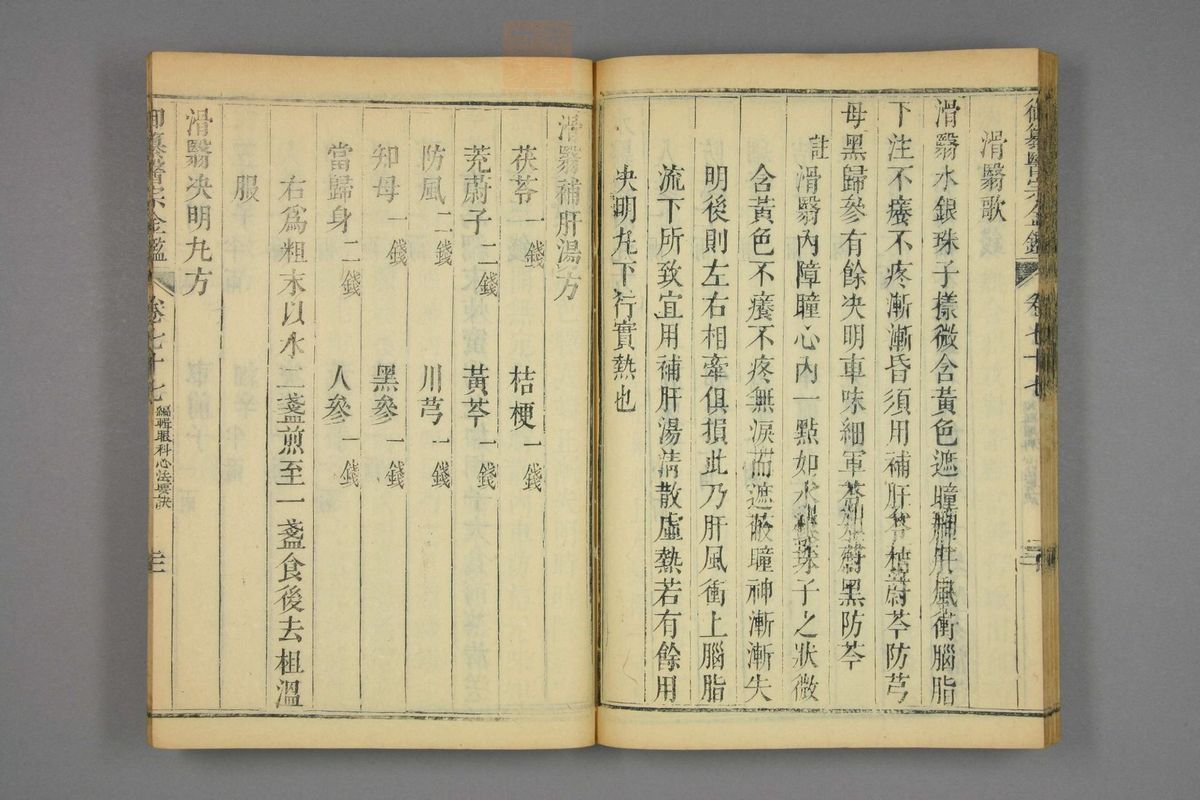 御纂醫宗金鑑 卷七十七
滑翳歌
滑翳水銀珠子樣微含黃色遮瞳神肝風衝腦脂
下注不癢不疼漸漸昏須用補肝苓桔蔚芩防芎
母黑歸參有餘决明車味細軍苓 蔚黑防芩
註 滑翳內障瞳心內一點如水銀珠子之狀微
含黃色不癢不疼無淚而遮蔽瞳神漸漸失
明後則左右相牽俱損此乃肝風衝上腦脂
流下所致宜用補肝湯清散虛熱若有餘用
决明丸下行實熱也
滑翳補肝湯方
茯苓一錢 桔梗一錢
茺蔚子二錢 黃芩一錢
防風二錢 川芎一錢
知母一錢 黑參一錢
當歸身二錢 人參一錢
右爲粗末以水二盞煎至一盞食後去柤溫
服
滑翳决明丸方
御纂醫宗金鑑 卷七十七 編輯眼科心法要訣